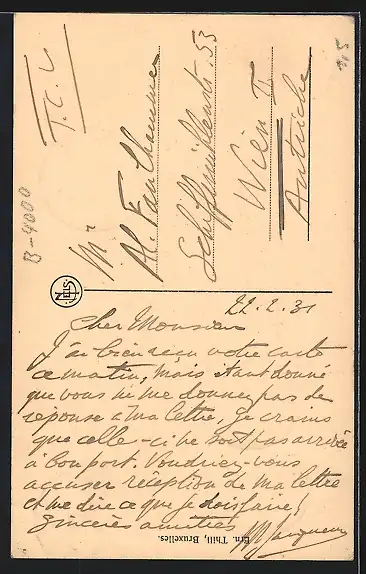 T. C. V.
Mr
Al. Fanthammer
Schiffmühlenstr. 53
Wien II
Autriche
B-4000
NELS
22.2.31
Cher Monsieur
J'ai bien reçu votre carte
ce matin, mais étant donné
que vous ne me donnez pas de
réponse à ma lettre, je crains
que celle-ci ne soit pas arrivée
à bon port. Voudriez-vous
accuser réception de ma lettre
et me dire ce que je dois faire,
Sincères amitiés
Ern. Thill, Bruxelles.